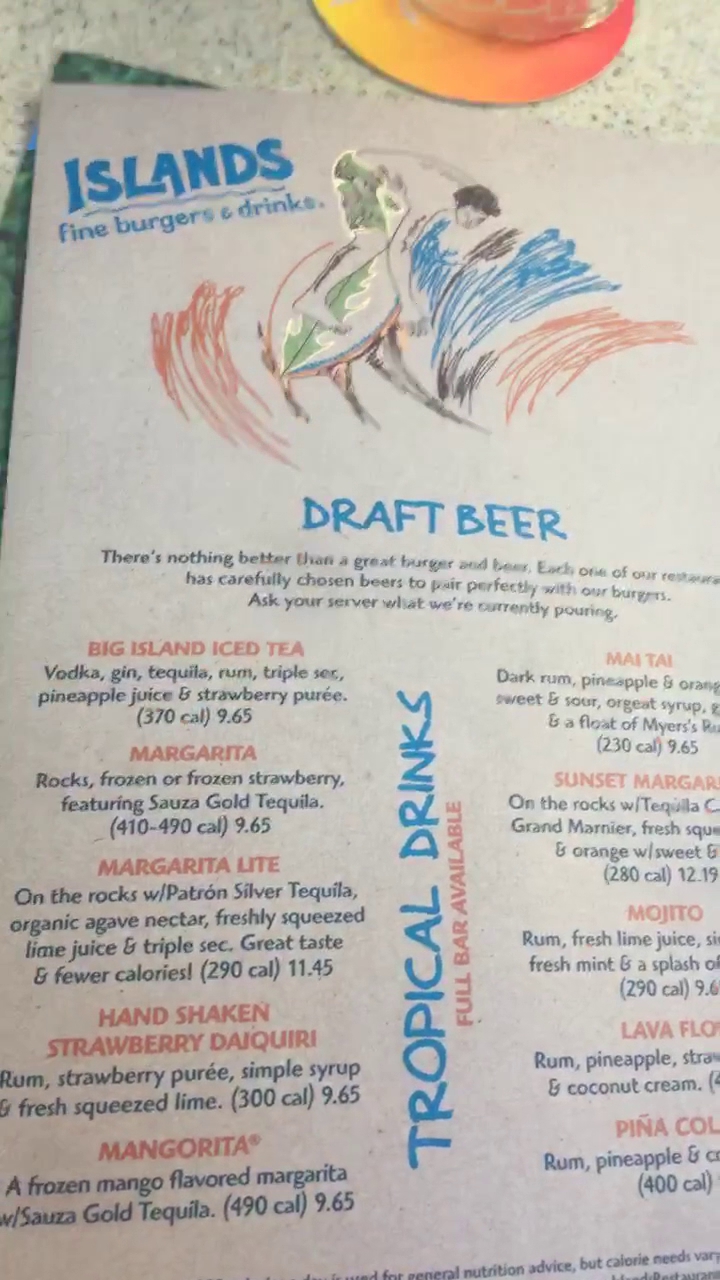 ISLANDS
fine burgers & drinks.
DRAFT BEER
There's nothing better than a great burger and beer. Each one of our
has carefully chosen beers to pair perfectly with our burgers.
Ask your server what we're currently pouring.
BIG ISLAND ICED TEA
Vodka, gin, tequila, rum, triple sec,
pineapple juice & strawberry purée.
(370 cal) 9.65
MARGARITA
Rocks, frozen or frozen strawberry,
featuring Sauza Gold Tequila.
(410-490 cal) 9.65
MARGARITA LITE
On the rocks w/Patrón Silver Tequila,
organic agave nectar, freshly squeezed
lime juice & triple sec. Great taste
& fewer calories! (290 cal) 11.45
HAND SHAKEN
STRAWBERRY DAIQUIRI
Rum, strawberry purée, simple syrup
& fresh squeezed lime. (300 cal) 9.65
MANGORITA®
A frozen mango flavored margarita
w/Sauza Gold Tequila. (490 cal) 9.65
TROPICAL DRINKS
FULL BAR AVAILABLE
MAI TAI
Dark rum, pineapple &
sweet & sour, orgeat syrup,
& a float of Myers's
(230 cal) 9.65
SUNSET
On the rocks w/Tequila
Grand Marnier, fresh
& orange w/sweet &
(280 cal) 12.19
MOJITO
Rum, fresh lime juice,
fresh mint & a splash
(290 cal)
LAVA
Rum, pineapple,
& coconut cream.
PIÑA
Rum, pineapple &
(400 cal)
for general nutrition advice, but calorie needs